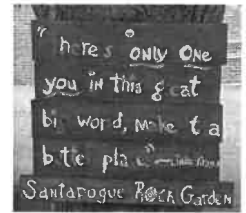 "here's ONLY ONE
you iN this g eat
bi wor d, Make t a
b t e pla e"
Santarogue Rock Garden